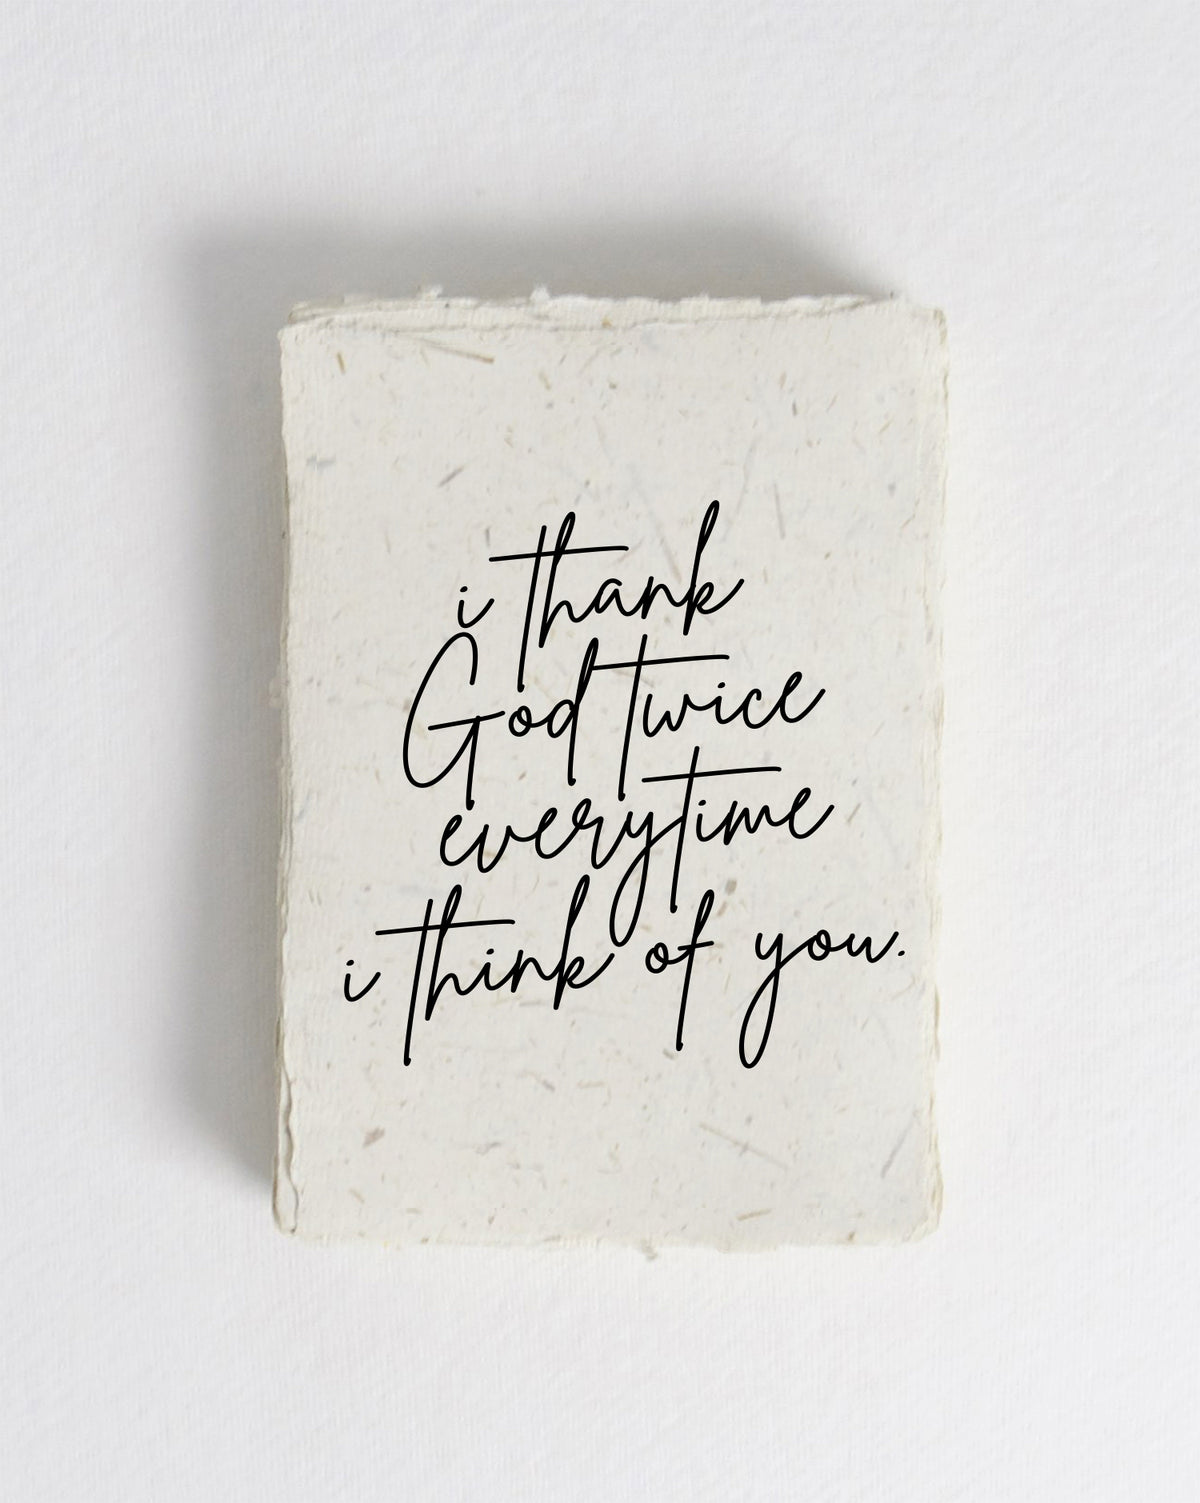 i thank
God twice
everytime
i think of you.